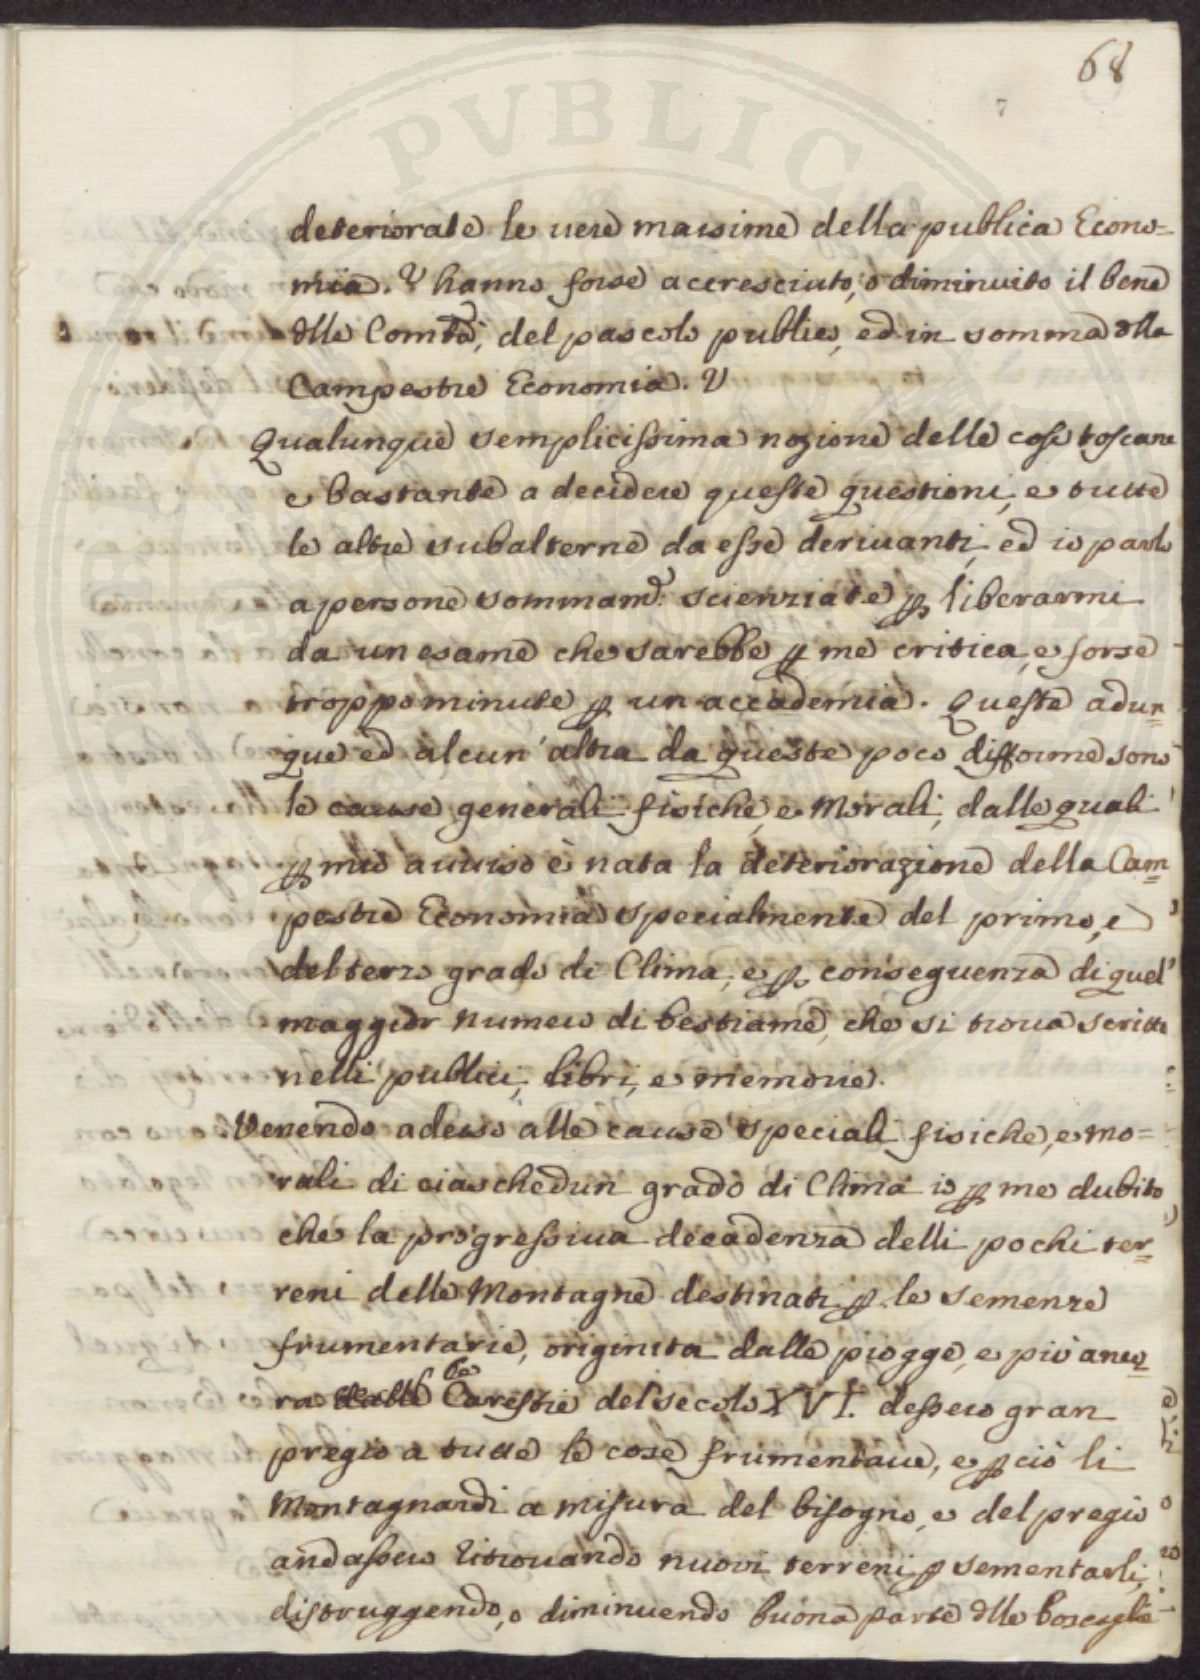 68
7
deteriorate le vere massime della publica Econo=
mia. V hanno forse accresciuto, o diminuito il bene
dlle Comtà, del pascolo publico, ed in somma dlla
Campestre Economia. V
Qualunque semplicissima nozione delle cose toscane
e bastante a decidere queste questioni, e tutte
le altre subalterne da esse derivanti, ed io parlo
a persone sommamte scienziate p liberarmi
da un esame che sarebbe p me critica, e forse
troppo minute p un accademia. Queste adun=
que ed alcun'altra da queste poco difforme sono
le cause generali fisiche, e Morali, dalle quali
p mio avviso è nata la deteriorazione della Cam=
pestre Economia specialmente del primo, e
del terzo grado di Clima, e p conseguenza di quel
maggior numero di bestiame, che si trova scritto
nelli publici, libri, e memorie.
Venendo adesso alle cause speciali fisiche, e mo=
rali di ciaschedun grado di Clima io p me dubito
che la progressiva decadenza delli pochi ter=
reni delle Montagne destinati p le semenze
frumentarie, originita dalle piogge, e più anco=
ra dalle Carestie del secolo XVI. dessero gran
pregio a tutte le cose frumentarie, e pciò li
Montagnardi a misura del bisogno, e del pregio
andassero ritrovando nuovi terreni p sementarli,
distruggendo, o diminuendo buona parte dlle boscaglie